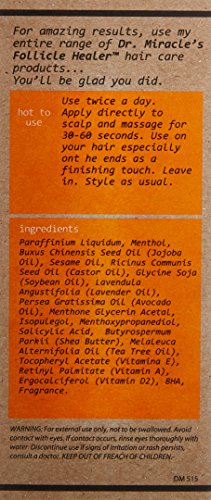 For amazing results, use my
entire range of Dr. Miracle's
Follicle Healer™ hair care
products...
You'll be glad you did.
hot to
use
Use twice a day.
Apply directly to
scalp and massage for
30-60 seconds. Use on
your hair especially
ont he ends as a
finishing touch. Leave
in. Style as usual.
ingredients
Paraffinium Liquidum, Menthol,
Buxus Chinensis Seed Oil (Jojoba
Oil), Sesame Oil, Ricinus Communis
Seed Oil (Castor Oil), Glycine Soja
(Soybean Oil), Lavendula
Angustifolia (Lavender Oil),
Persea Gratissima Oil (Avocado
Oil), Menthone Glycerin Acetal,
Isopulegol, Menthoxypropanediol,
Salicylic Acid, Butyrospermum
Parkii (Shea Butter), MelaLeuca
Alternifolia Oil (Tea Tree Oil),
Tocopheryl Acetate (Vitamine E),
Retinyl Palmitate (Vitamin A),
Ergolciferol (Vitamin D2), BHA,
Fragrance.
WARNING: For external use only, not to be swallowed. Avoid
contact with eyes. If contact occurs, rinse eyes thoroughly with
water. Discontinue use if signs of irritation or rash persists,
consult a doctor. KEEP OUT OF REACH OF CHILDREN.
DM 515